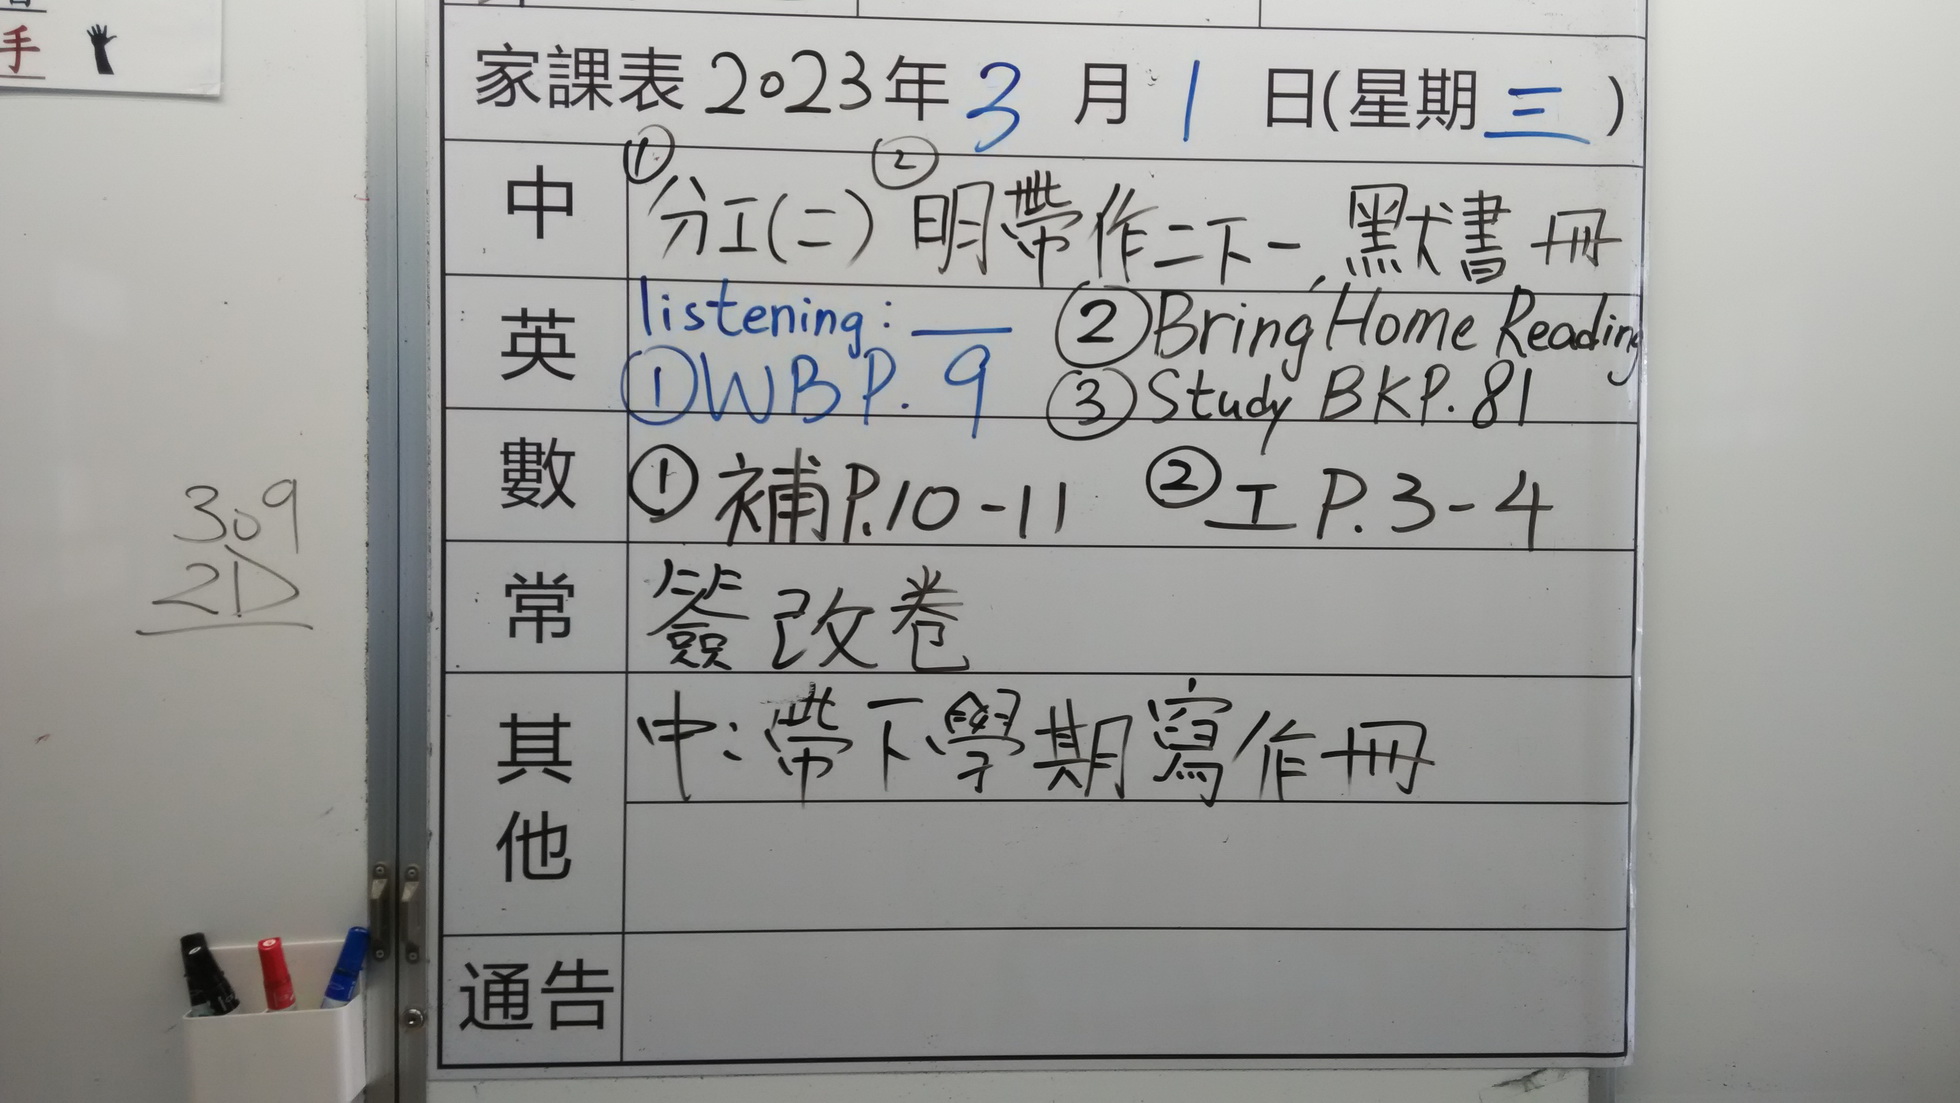 手
家課表 2023年 3 月 1 日(星期 三 )
中 ① 分工(二) ② 明帶作二下一, 默書冊
英 listening: ② Bring Home Reading
① WB P. 9 ③ Study BK P. 81
數 ① 補 P.10-11 ② 工 P. 3-4
常 簽改卷
其他 中: 帶下學期寫作冊
通告
309
2D